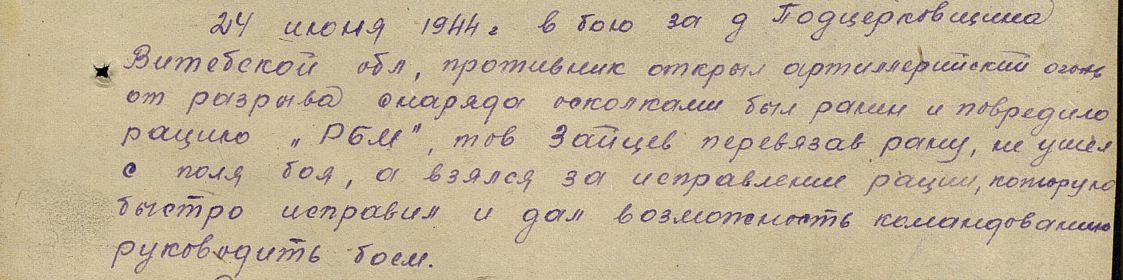 24 июня 1944 г в бою за д Подцерковщина
Витебской обл, противник открыл артиллерийский огонь
от разрыва снаряда осколками был ранен и повредило
рацию „РБМ", тов Зайцев перевязав рану, не ушел
с поля боя, а взялся за исправление рации, которую
быстро исправил и дал возможность командованию
руководить боем.